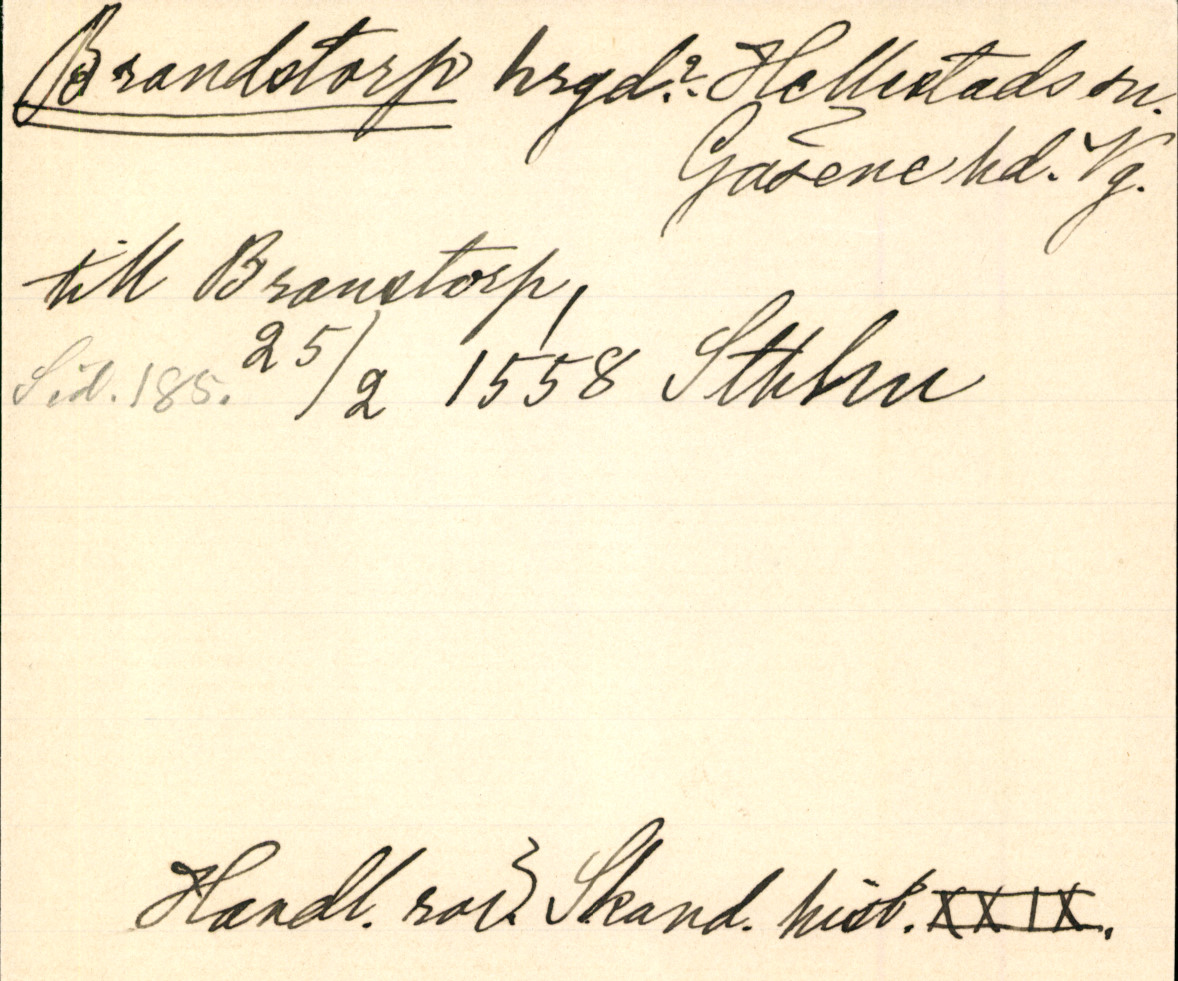 Brandstorp hrgd.? Hellestads sn.
Gäsene hd. Vg.
till Branstorp,
Sid. 185. 25/2 1558 Sthlm
Handl. rör. Skand. hist. XXIX.